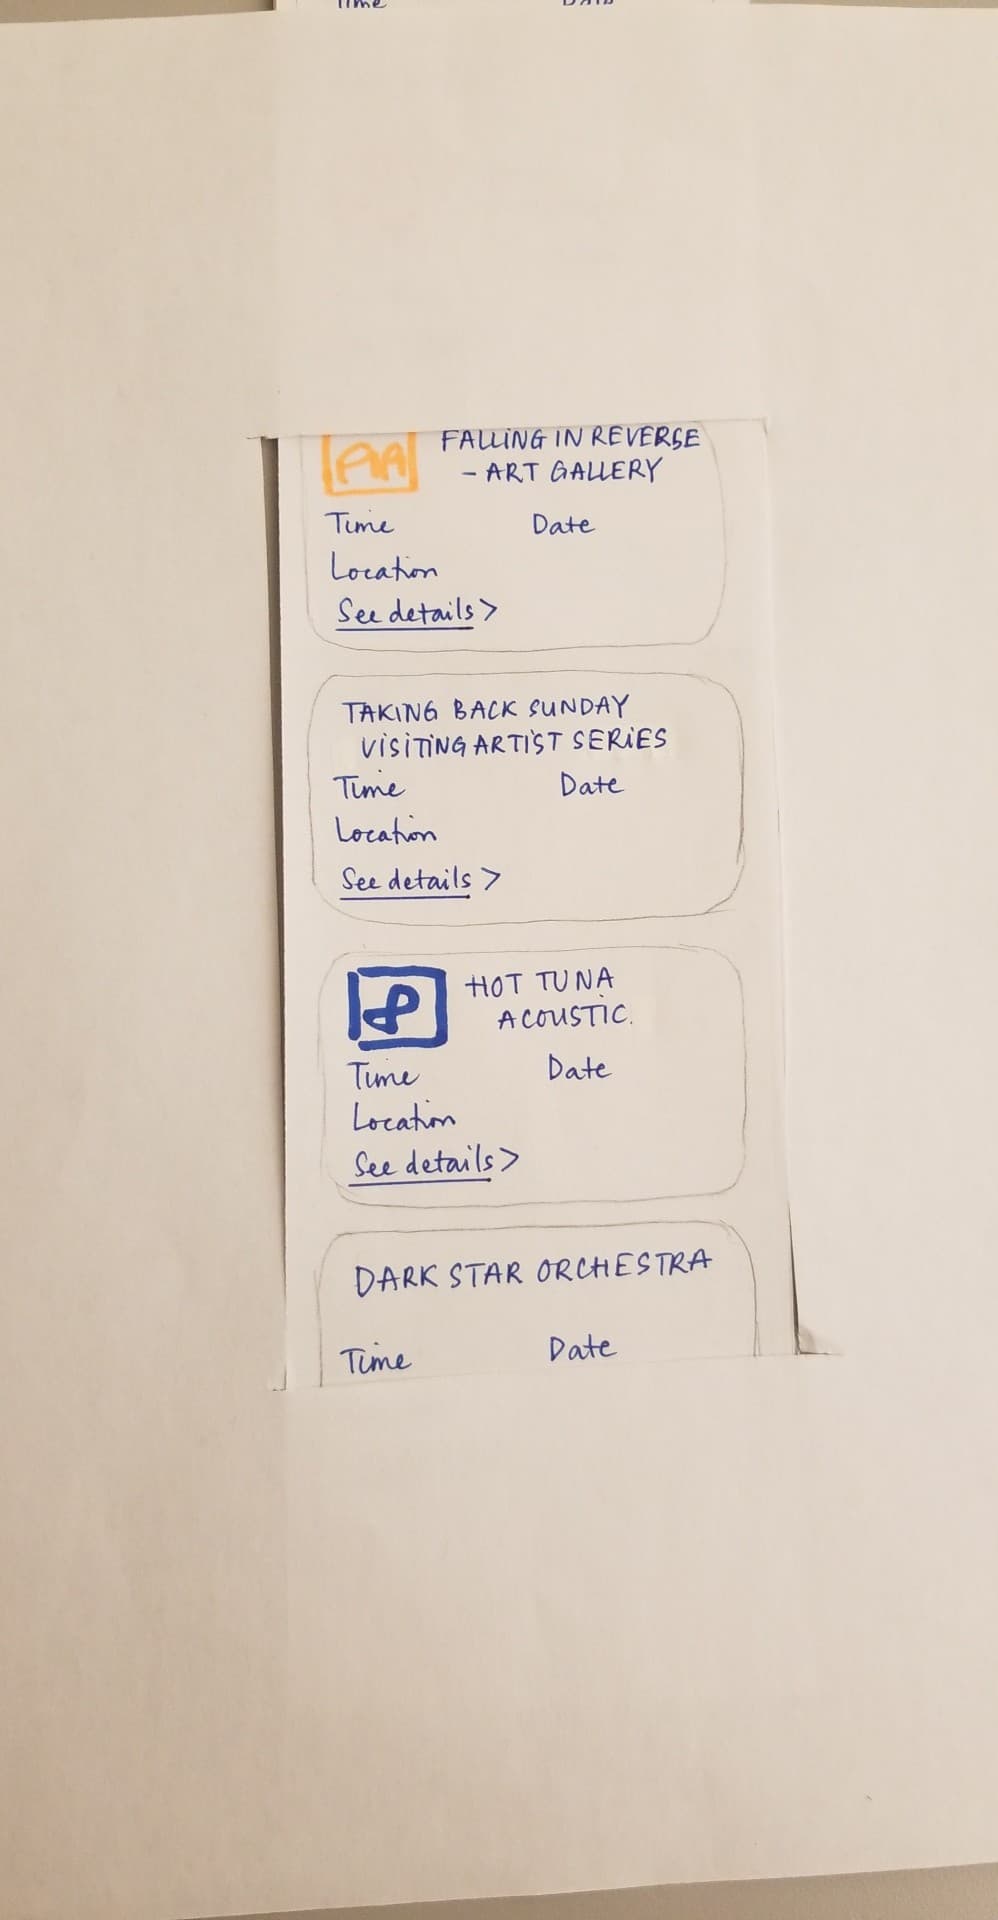 Time Date
AA FALLING IN REVERSE
- ART GALLERY
Time Date
Location
See details >
TAKING BACK SUNDAY
VISITING ARTIST SERIES
Time Date
Location
See details >
HOT TUNA
ACOUSTIC.
Time Date
Location
See details >
DARK STAR ORCHESTRA
Time Date